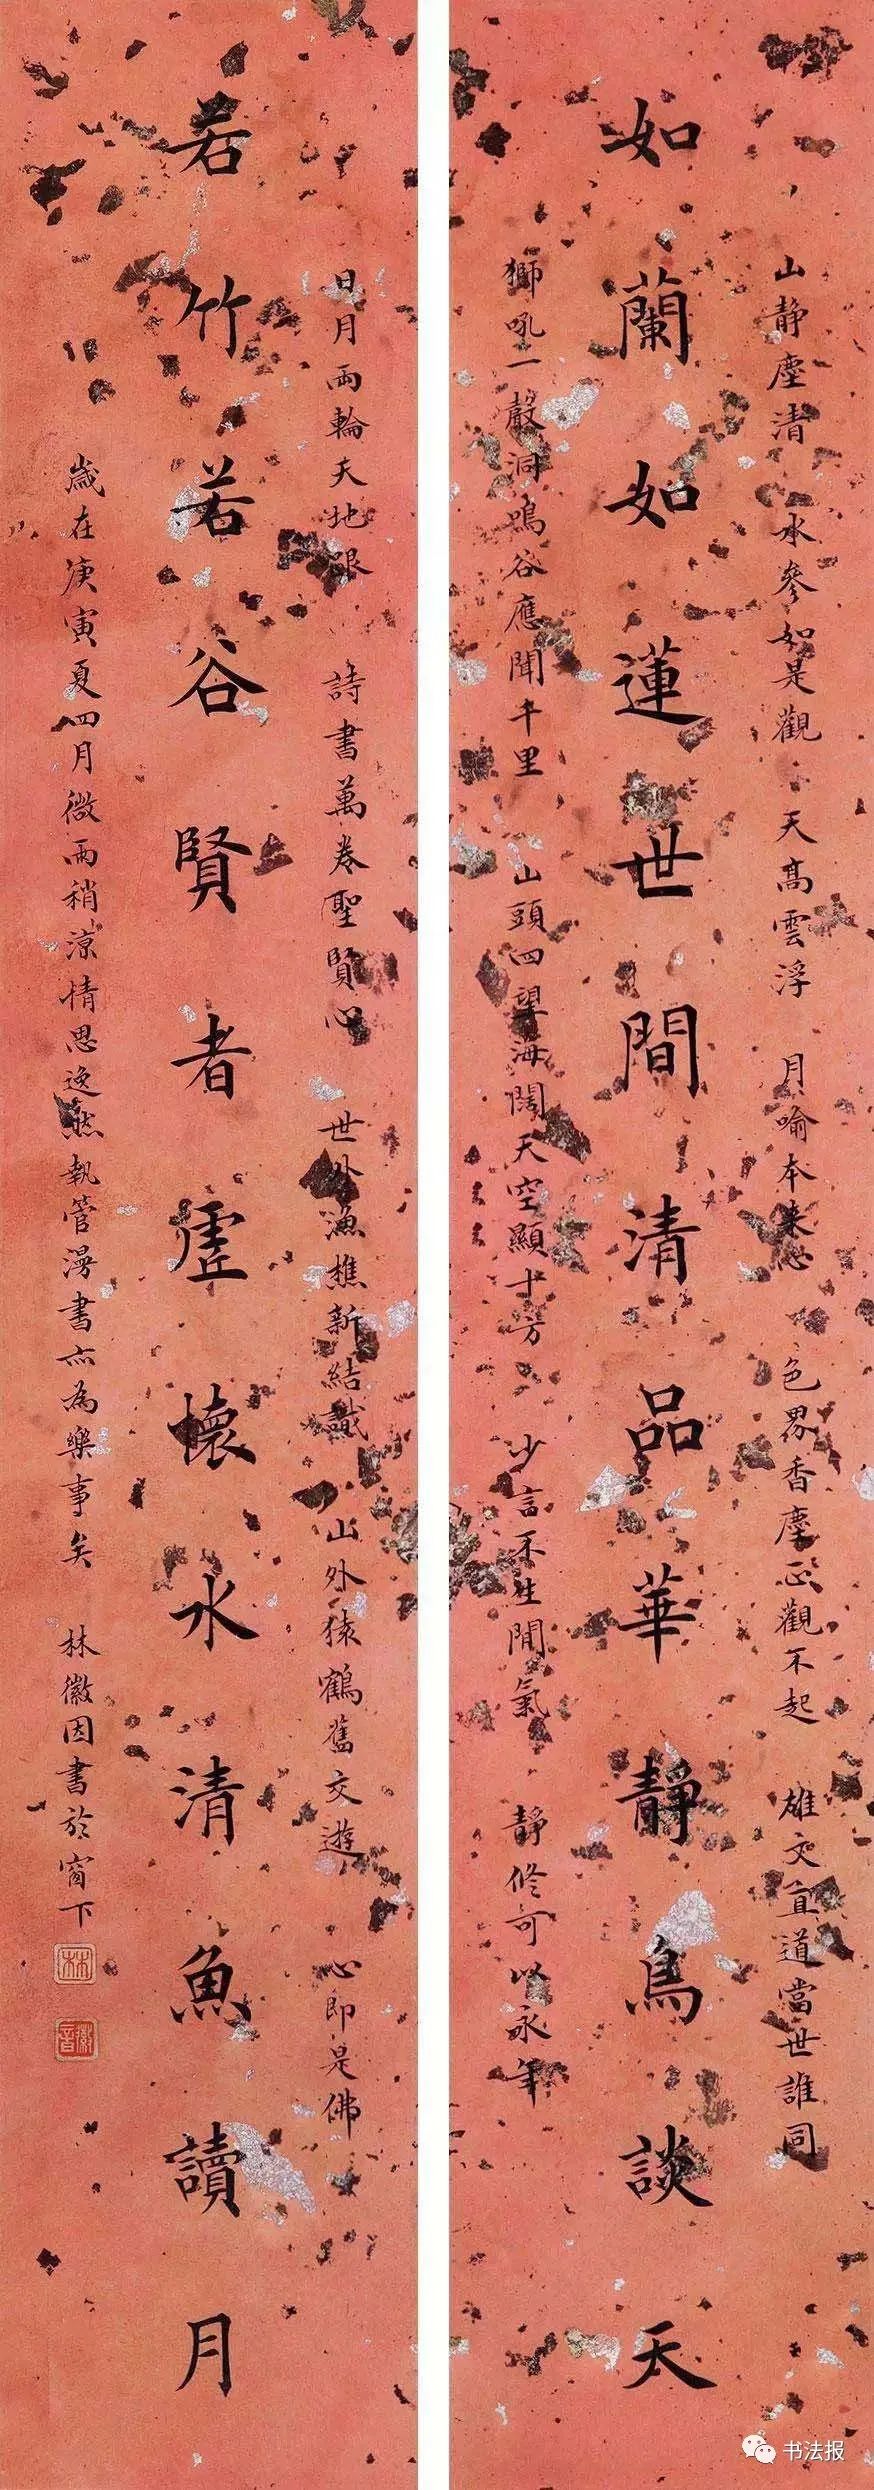 山靜塵清 水參如是觀 天高雲浮 月喻本來心 色界香塵正觀不起 雄文直道當世誰同
如蘭如蓮世間清品華靜鳥談天
獅吼一聲洞鳴谷應聞千里 山頭四望海闊天空顯十方 少言不生閒氣 靜修可以永年
日月兩輪天地眼 詩書萬卷聖賢心 世外漁樵新結識 山外猿鶴舊交遊 心即是佛
若竹若谷賢者虛懷水清魚讀月
歲在庚寅夏四月微雨稍涼情思逸然執管漫書亦為樂事矣 林徽因書於窗下
林
徽音
书法报